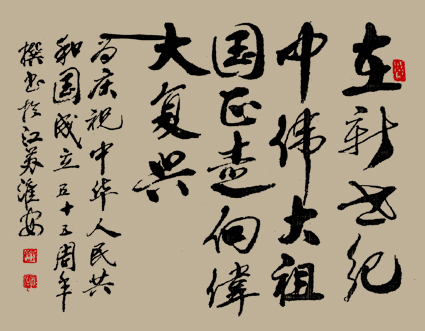 在新世纪
中伟大祖
国正走向偉
大复兴
为庆祝中华人民共
和国成立五十五周年
撰书於江苏淮安